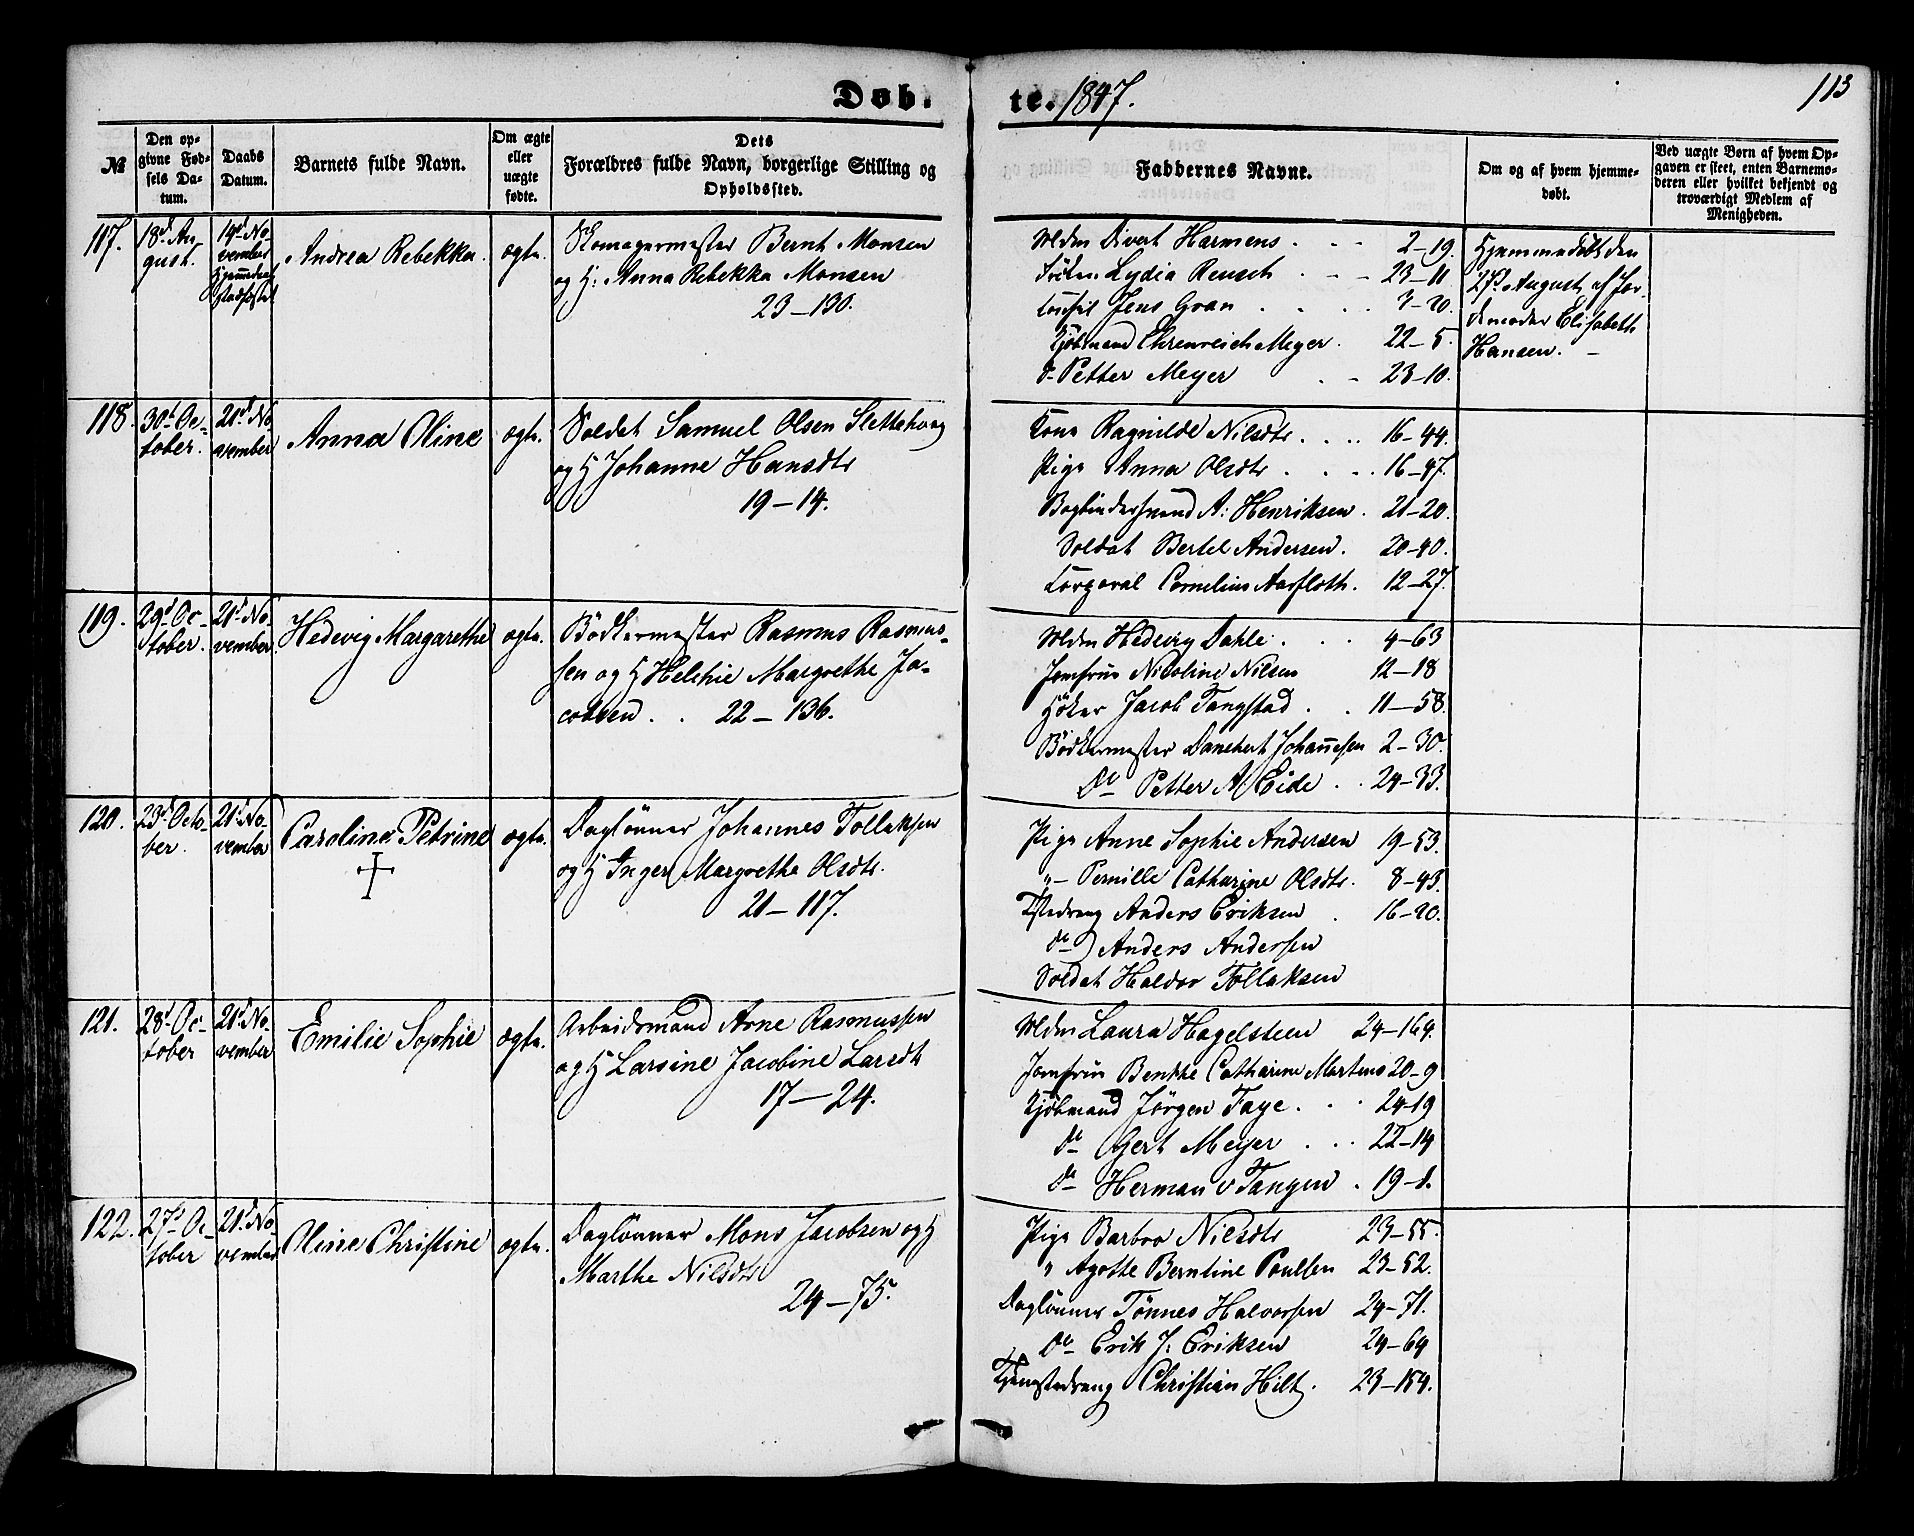 Døb-
te. 1847.
113
№
Den op-
givne Fød-
sels Da-
tum.
Daabs
Datum.
Barnets fulde Navn.
Om ægte
eller
uægte
fødte.
Dets
Forældres fulde Navn, borgerlige Stilling og
Opholdssted.
Faddernes Navne.
Om og af hvem hjemme-
døbt.
Ved uægte Børn af hvem Op-
gaven er skeet, enten Barnemo-
deren eller hvilket bekjendt og
troværdigt Medlem af
Menigheden.
117.
18d Au
gust.
14d No
vember
Hjemmedaab
stadfæstet
Andrea Rebekka.
ægte.
Skomagermester Bernt Monsen
og H: Anna Rebekka Monsen
23-130.
Mdm Divert Harmens . . . 2-19.
Frøken Lydia Reusch . . . 23-11
Consul Jens Gran . . . . 3-20.
Kjøbmand Ehrenreich Meyer. 22-5.
do Petter Meyer . . 23-10.
Hjemmedøbt den
27d August af Jor-
demoder Elisabeth
Hansen.
118.
30t Oc-
tober.
21d No
vember
Anna Oline
ægte.
Soldat Samuel Olsen Slettehoug
og H Johanne Hansdtr
19-14.
Kone Ragnilde Nilsdtr. . . . 16-44.
Pige Anna Olsdtr . . . 16-47.
Bogbindersvend A: Henriksen . 21-20.
Soldat Bertel Andersen. 20-40.
Corporal Cornelius Aarfloth. 12-27.
119.
29d Oc-
tober.
21d No-
vember
Hedevig Margarethe
ægte.
Bødkermester Rasmus Rasmus-
sen og H Helchie Margrethe Ja-
cobsen . . 22-136.
Mdm Hedevig Dahle . . . 4-63
Jomfrue Nicoline Nilsen 12-18
Høker Jacob Tangstad . . 11-58.
Bødkermester Danchert Johannesen 2-30.
Do Petter A Eide . . 24-33.
120.
23d Octo-
ber.
21d No-
vember
Caroline Petrine
ægte.
Dagl­ønner Johannes Tollaksen
og H Inger Margrethe Olsdtr.
21-117.
Pige Anne Sophie Andersen 19-53.
"- Pernille Catharine Olsdtr. 8-43.
Tjenestedreng Anders Eriksen . 16-20.
do Anders Andersen
Soldat Haldor Tollaksen
121.
28d Oc-
tober
21d No-
vember
Emilie Sophie
ægte.
Arbeidsmand Arne Rasmussen
og H Larsine Jacobine Larsdtr
17-24.
Mdm Laura Hagelsteen 24-164.
Jomfrue Benthe Catharine Martens 20-9
Kjøbmand Jørgen Faye . . . 24-19
do Gert Meyer . . . 22-14
do Herman v Tangen . 19-1.
122.
27d Oc
tober
21d No
vember
Oline Christine
ægte.
Daglønner Mons Jacobsen og H
Marthe Nilsdtr
24-75.
Pige Barbro Nielsdtr 23-55.
" Agathe Berntine Poulsen 23-52.
Daglønner Tønnes Halvorsen 24-71.
Do Erik J: Eriksen 24-64
Tjenestedreng Christian Hilt. 23-154.